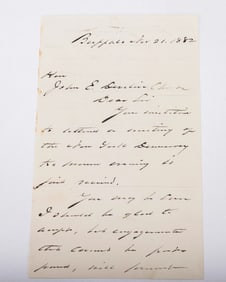 Buffalo Nov 21. 1882
Hon
John E. Develin
Dear Sir
Your invitation
to attend a meeting of
the New York Democracy
to
just received.
You may be sure
I should be glad to
accept, but engagements
that cannot be post
poned, will prevent